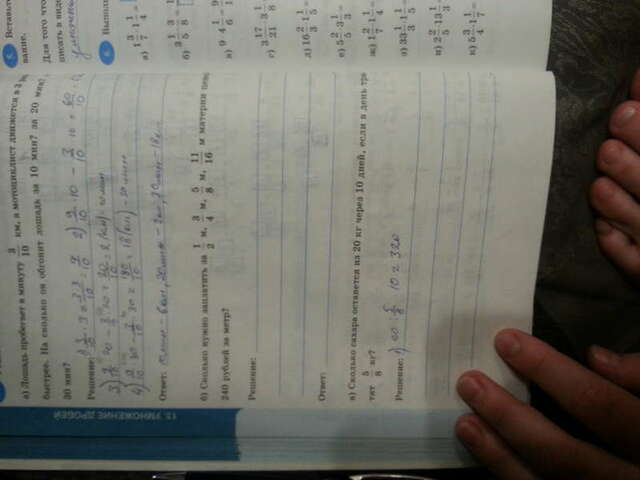 а) Лошадь пробегает в минуту 3/10 км, а мотоциклист движется в 3 ра
быстрее. На сколько он обгонит лошадь за 10 мин? за 20 мин?
30 мин?
Решение: 1) 3/10 · 3 = 3·3/10 = 9/10 2) 9/10 · 10 − 3/10 · 10 = 60/10
3) 20 − 20 = 2 (км) − 20 мин
4) 9/10 · 30 − 3/10 · 30 = 180/10 = 18 (км) − 30 мин
Ответ: 10 мин − 6 км, 20 мин − 2 км, 30 мин − 18 км
б) Сколько нужно заплатить за 1/2 м, 3/4 м, 5/8 м, 11/16 м материи цено
240 рублей за метр?
Решение:
Ответ:
в) Сколько сахара останется из 20 кг через 10 дней, если в день тра
тят 5/8 кг?
Решение: 1) 20 : 5/8 · 10 = 320
13. УМНОЖЕНИЕ ДРОБЕЙ
5. Вставьте
вание.
Для того что
писать в виде
умножени
6. Выполн
а) 1 3/7 · 1 1/4 =
б) 3 1/5 · 3/8 =
в) 9 · 4 1/6 =
г) 3 17/21 · 3 1/8
д) 16 2/3 · 1 1/5 =
е) 5 2/5 · 3 1/3 =
ж) 1 2/7 · 1 1/4 =
з) 33 1/3 · 1 1/5
и) 2 2/5 · 13 1/3
к) 5 3/4 · 1 1/7 =